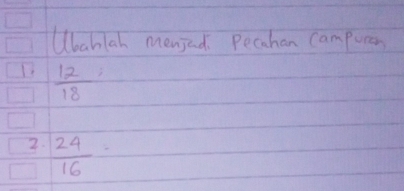 Ubahlah menjadi Pecahan Campuran
1. 12/18
2. 24/16